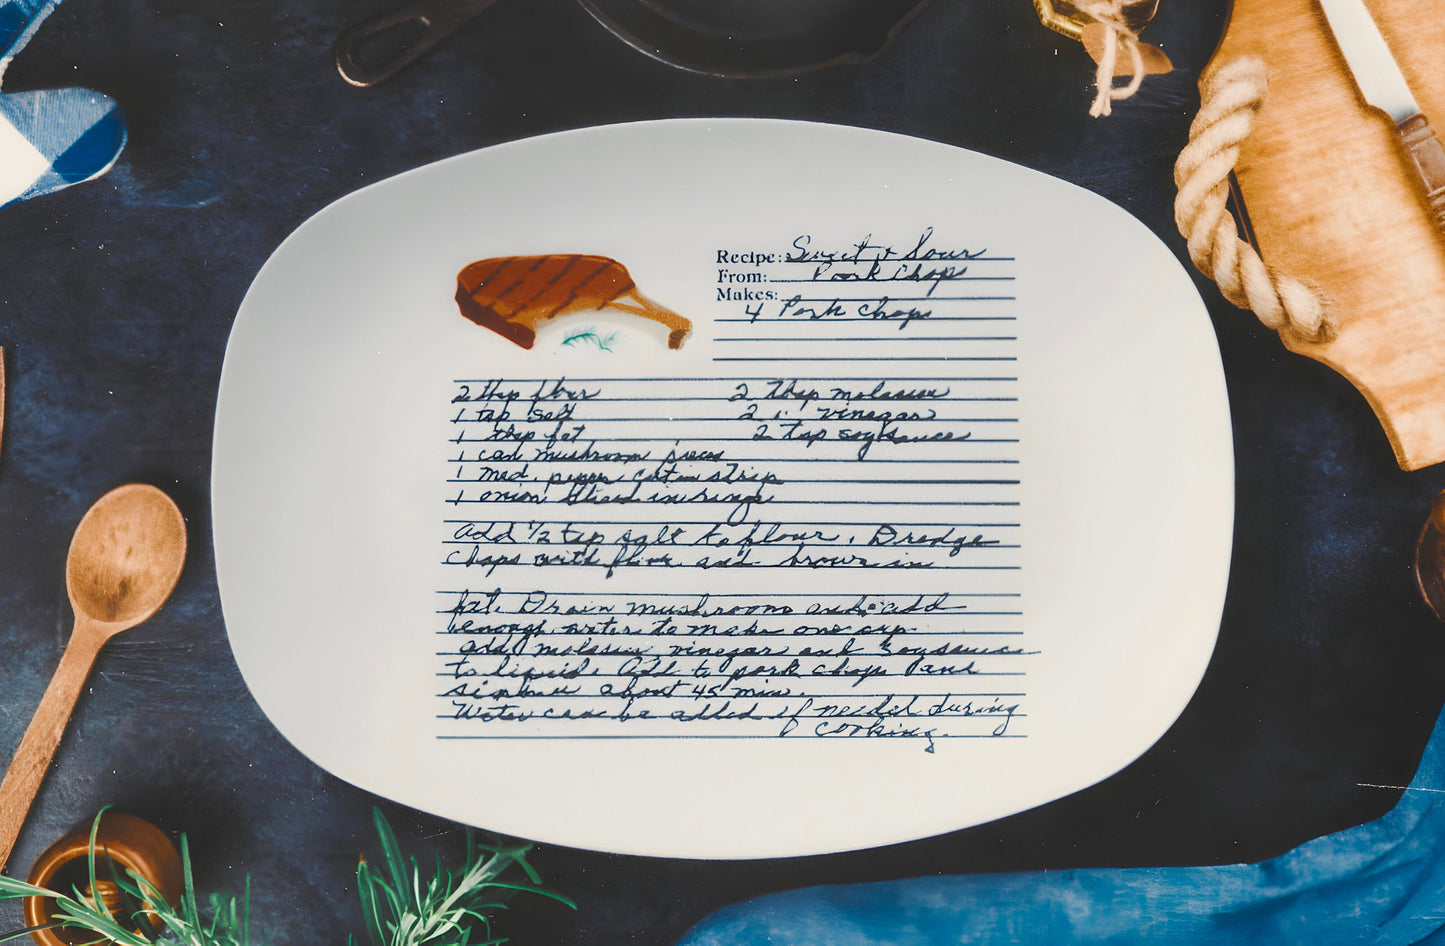 Recipe: Sweet & Sour
From: Pork Chops
Makes:
4 Pork Chops
2 tbsp flour
1 tsp salt
1 tbsp fat
1 can mushroom pieces
1 med. pepper cut in strip
1 onion sliced in rings
2 Tbsp molasses
2 " vinegar
2 tsp soy sauce
Add 1/2 tsp salt to flour. Dredge
chops with flour and brown in
fat. Drain mushrooms and add
enough water to make one cup.
add molasses, vinegar and soy sauce
to liquid. Add to pork chops and
simmer about 45 min.
Water can be added if needed during
cooking.